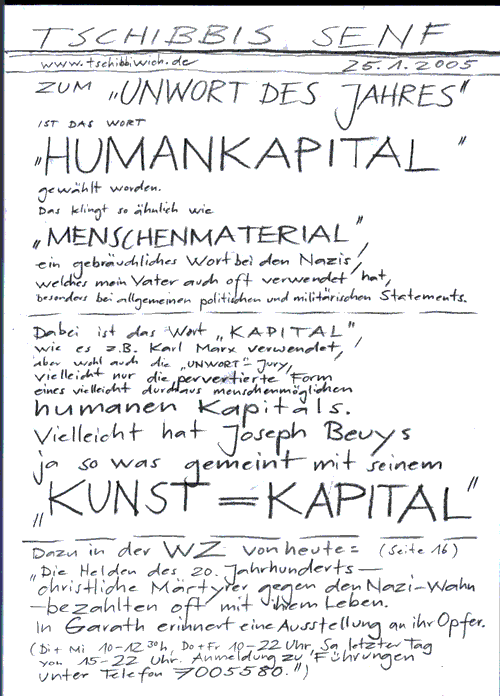 TSCHIBBIS SENF
www.tschibbiwich.de 25.1.2005
ZUM „UNWORT DES JAHRES"
IST DAS WORT
„HUMANKAPITAL"
gewählt worden.
Das klingt so ähnlich wie
„MENSCHENMATERIAL",
ein gebräuchliches Wort bei den Nazis,
welches mein Vater auch oft verwendet hat,
besonders bei allgemeinen politischen und militärischen Statements.
Dabei ist das Wort „KAPITAL",
wie es z.B. Karl Marx verwendet,
aber wohl auch die „UNWORT"-Jury,
vielleicht nur die pervertierte Form
eines vielleicht durchaus menschenmöglichen
humanen Kapitals.
Vielleicht hat Joseph Beuys
ja so was gemeint mit seinem
„KUNST = KAPITAL"
Dazu in der WZ von heute: (Seite 16)
„Die Helden des 20. Jahrhunderts –
christliche Märtyrer gegen den Nazi-Wahn
– bezahlten oft mit ihrem Leben.
In Garath erinnert eine Ausstellung an ihr Opfer.
(Di + Mi 10-12 30h, Do + Fr 10-22 Uhr, Sa letzter Tag
von 15-22 Uhr. Anmeldung zu Führungen
unter Telefon 7005580.")